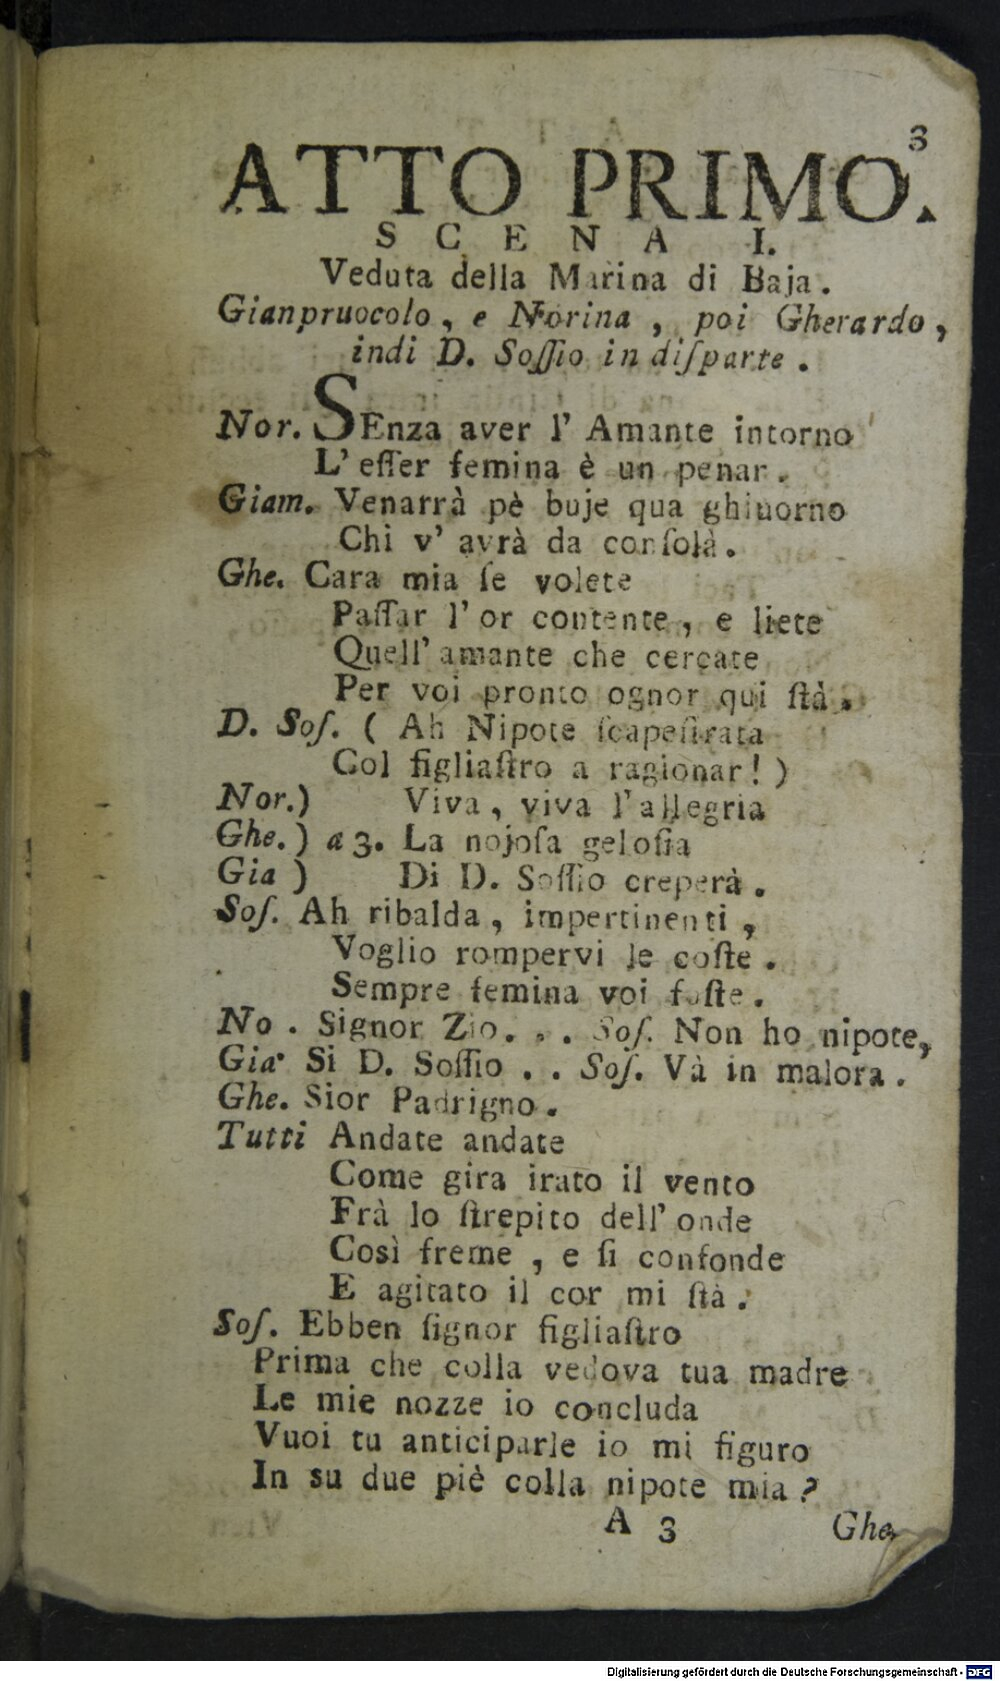 3
ATTO PRIMO.
SCENA I.
Veduta della Marina di Baja.
Gianpruocolo, e Norina, poi Gherardo,
indi D. Soſſio in diſparte.
Nor. SEnza aver l' Amante intorno
L' eſſer femina è un penar.
Giam. Venarrà pè buje qua ghiuorno
Chi v' avrà da conſolà.
Ghe. Cara mia ſe volete
Paſſar l' or contente, e liete
Quell' amante che cercate
Per voi pronto ognor qui ſtà.
D. Soſ. ( Ah Nipote ſcapeſtrata
Col figliaſtro a ragionar! )
Nor.) Viva, viva l' allegria
Ghe. ) a 3. La nojoſa geloſia
Gia ) Di D. Soſſio creperà.
Soſ. Ah ribalda, impertinenti,
Voglio rompervi le coſte.
Sempre femina voi foſte.
No. Signor Zio... Soſ. Non ho nipote,
Gia. Si D. Soſſio .. Soſ. Và in malora.
Ghe. Sior Padrigno.
Tutti Andate andate
Come gira irato il vento
Frà lo ſtrepito dell' onde
Così freme, e ſi confonde
E agitato il cor mi ſtà.
Soſ. Ebben ſignor figliaſtro
Prima che colla vedova tua madre
Le mie nozze io concluda
Vuoi tu anticiparle io mi figuro
In su due piè colla nipote mia?
A 3 Ghe.
Digitalisierung gefördert durch die Deutsche Forschungsgemeinschaft - DFG